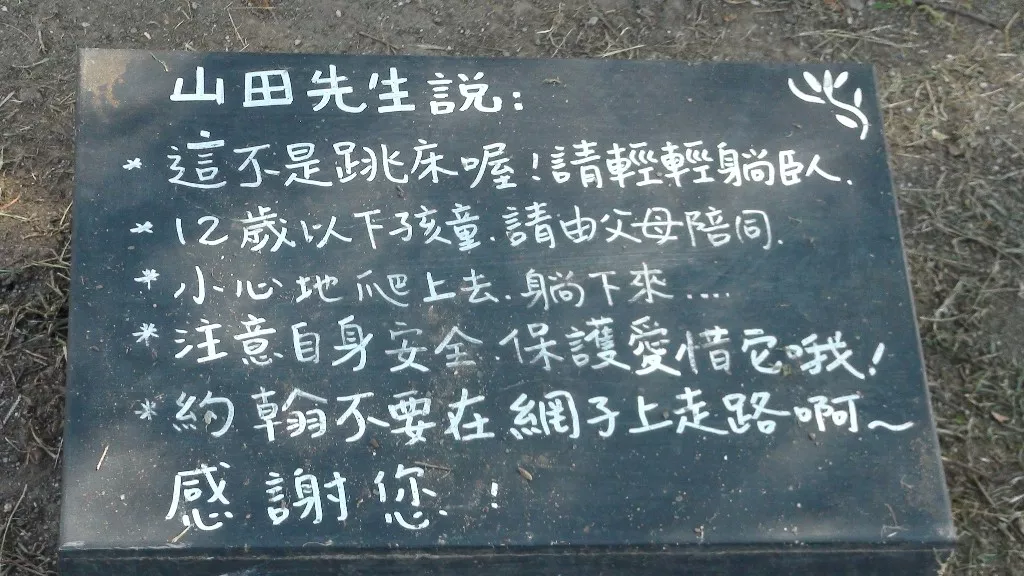 山田先生説:
* 這不是跳床喔!請輕輕躺臥.
* 12歲以下孩童.請由父母陪同.
* 小心地爬上去.躺下來.....
* 注意自身安全.保護愛惜它哦!
* 約翰不要在網子上走路啊~
感謝您!